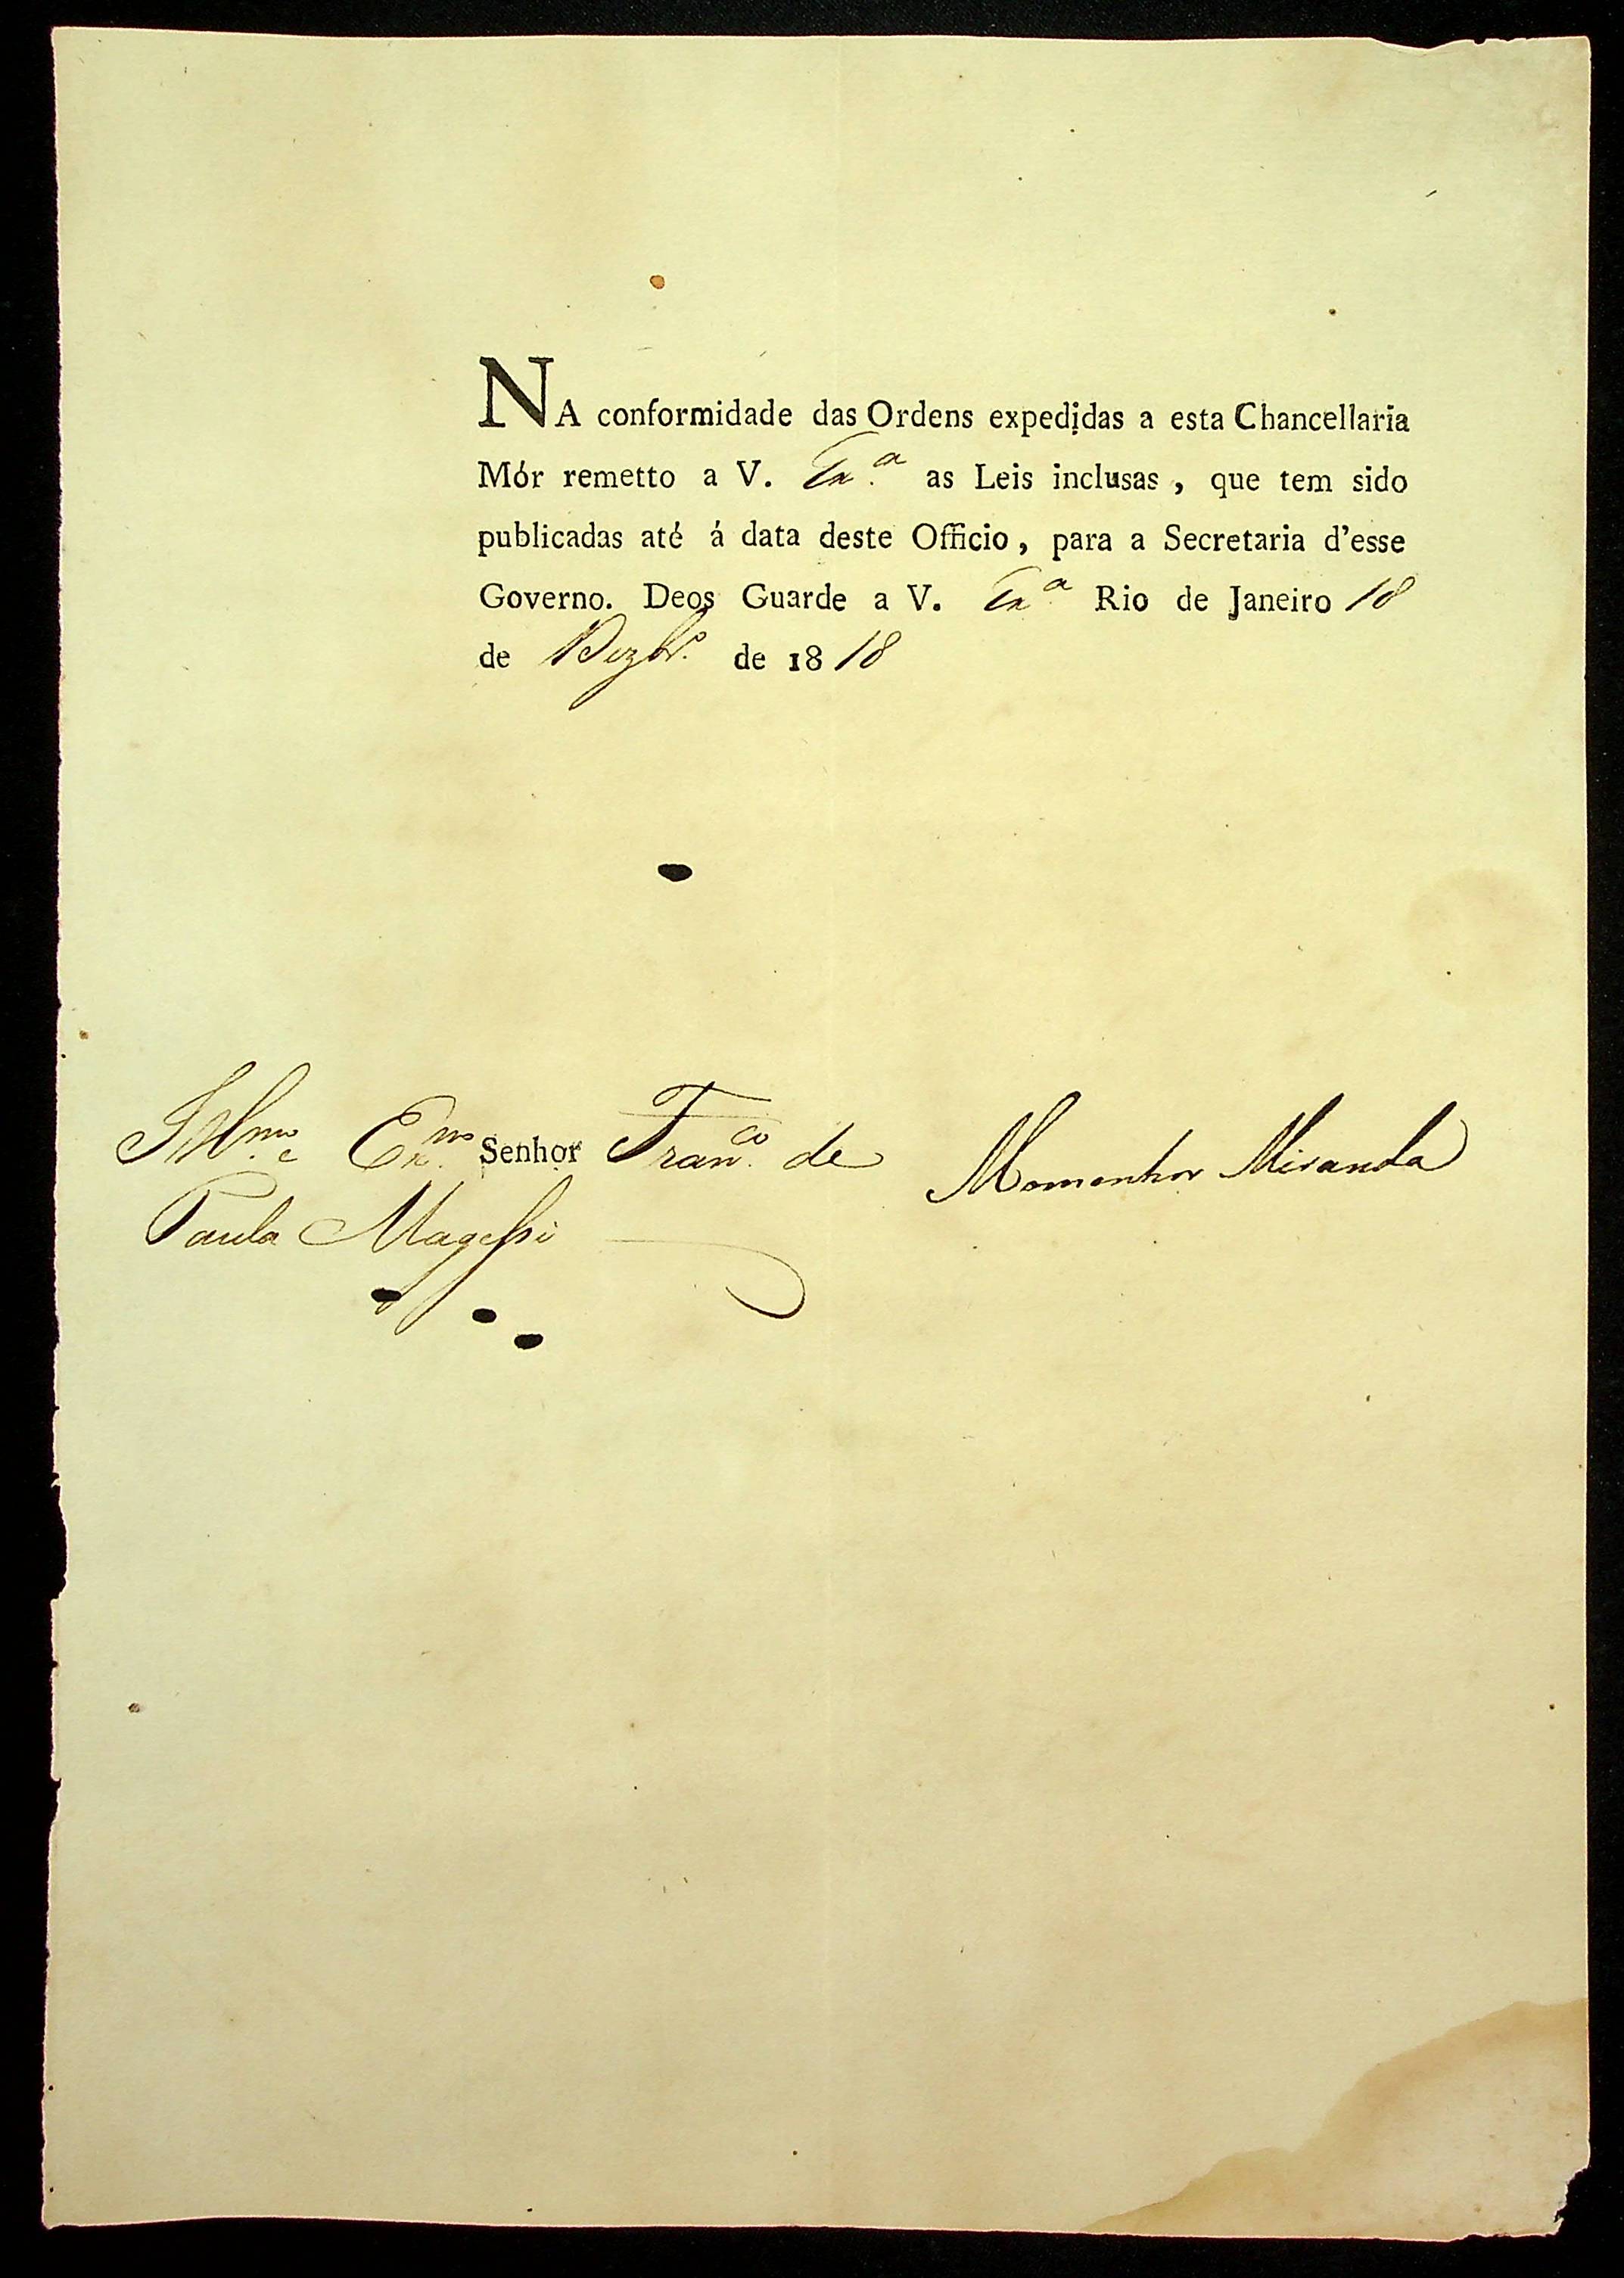 NA conformidade das Ordens expedidas a esta Chancellaria
Mór remetto a V. Ex.ª as Leis inclusas, que tem sido
publicadas até á data deste Officio, para a Secretaria d'esse
Governo. Deos Guarde a V. Ex.ª Rio de Janeiro 18
de Dezbr.º de 1818
Illmo. e Exmo. Senhor Franco. de
Paula Magessi
Monsenhor Miranda